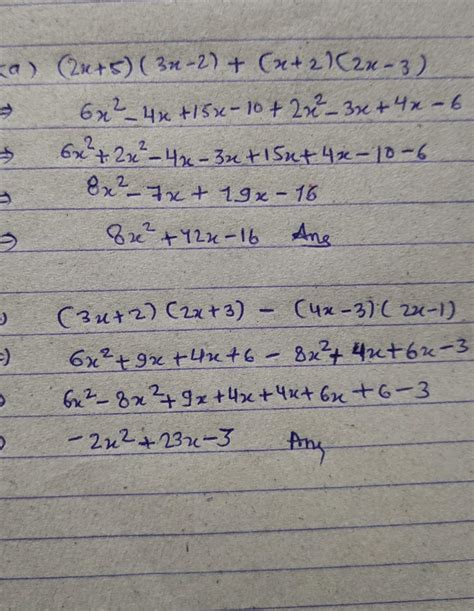 (a) (2x+5)(3x-2) + (x+2)(2x-3)
⇒ 6x²-4x+15x-10+2x²-3x+4x-6
⇒ 6x²+2x²-4x-3x+15x+4x-10-6
⇒ 8x²-7x+19x-16
⇒ 8x²+12x-16 Ans
(3x+2)(2x+3) - (4x-3)(2x-1)
6x²+9x+4x+6-8x²+4x+6x-3
6x²-8x²+9x+4x+4x+6x+6-3
-2x²+23x-3 Ans